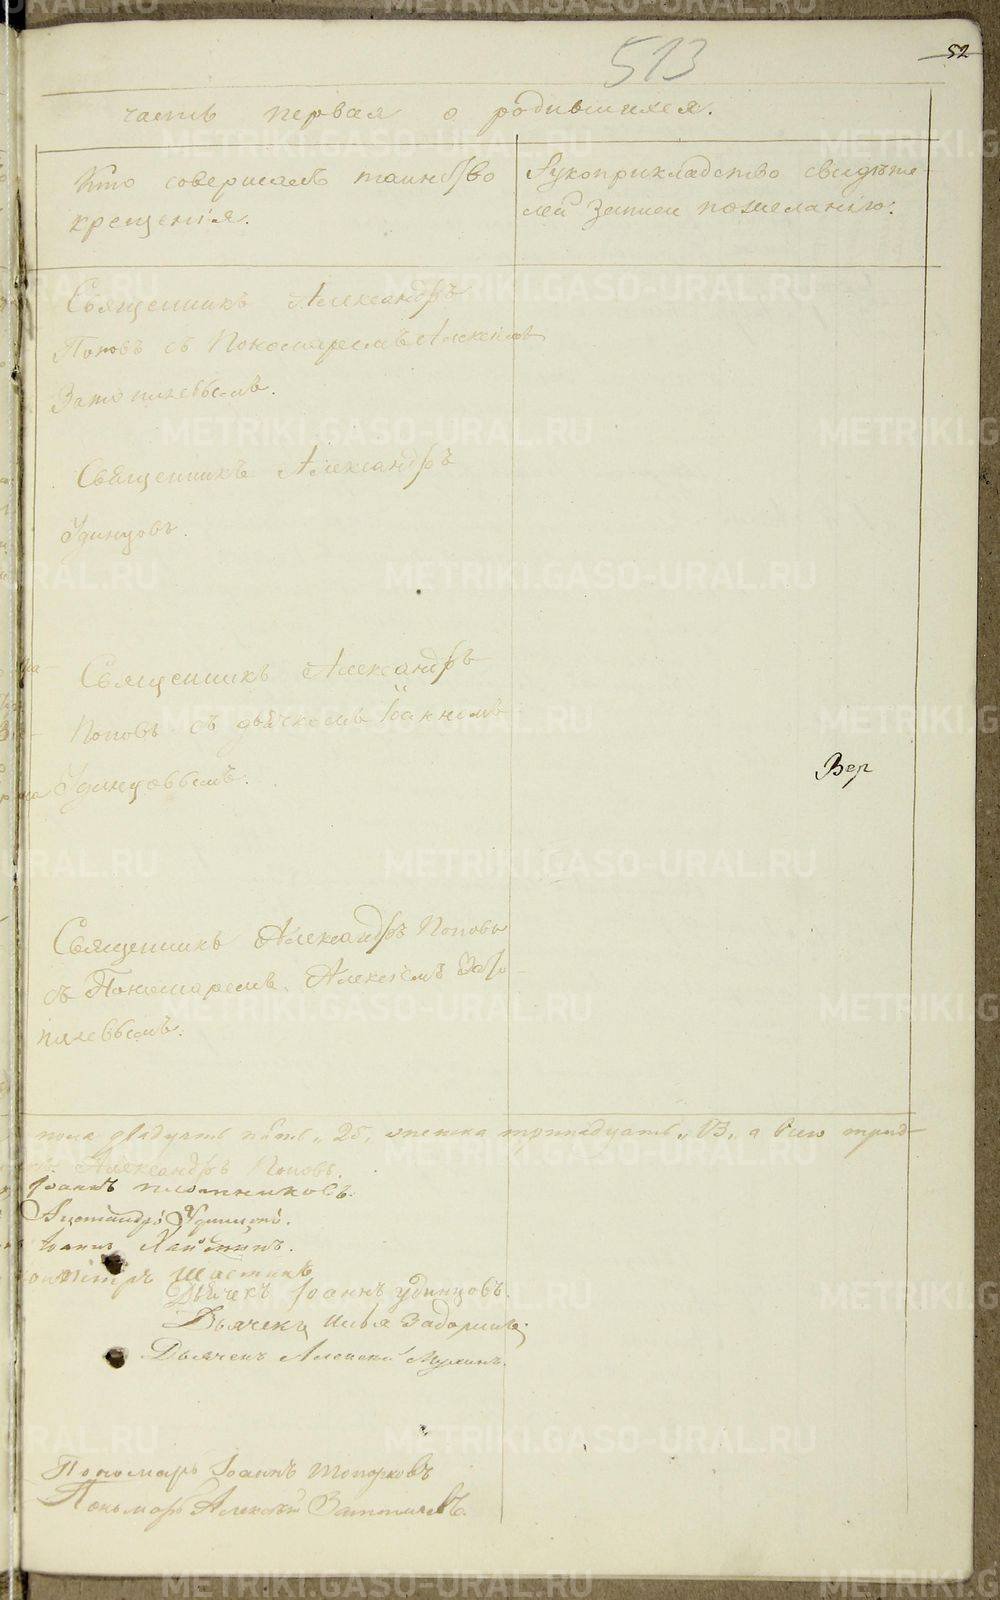 513
52
часть первая о родившихся.
Кто совершалъ таинство
крещенія.
Рукоприкладство свидѣте-
лей записи по желанію.
Священникъ Александръ
Поповъ съ Пономаремъ Алексѣемъ
Затопляевымъ.
Священникъ Александръ
Удинцовъ.
Священникъ Александръ
Поповъ съ дьячкомъ Іоанномъ
Удинцовымъ.
Вер
Священникъ Александръ Поповъ
съ Пономаремъ Алексѣемъ Зато
пляевымъ.
пола двадцать пять, 25, женска тринадцать, 13, а всего трид-
Александръ Поповъ.
Іоаннъ Плотниковъ.
Александръ Удинцовъ.
Іоаннъ
Дьячекъ Іоаннъ Удинцовъ.
Дьячекъ Илья Задоринъ
Дьячекъ Алексей
Пономарь Іоаннъ Топорковъ
Пономарь Алексѣй Затопляевъ.
METRIKI.GASO-URAL.RU